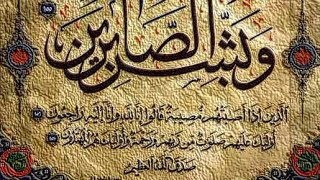 وَبَشِّرِ الصَّابِرِينَ
الَّذِينَ إِذَا أَصَابَتْهُمْ مُصِيبَةٌ قَالُوا إِنَّا لِلَّهِ وَإِنَّا إِلَيْهِ رَاجِعُونَ
أُولَئِكَ عَلَيْهِمْ صَلَوَاتٌ مِنْ رَبِّهِمْ وَرَحْمَةٌ وَأُولَئِكَ هُمُ الْمُهْتَدُونَ
صدق الله العظيم